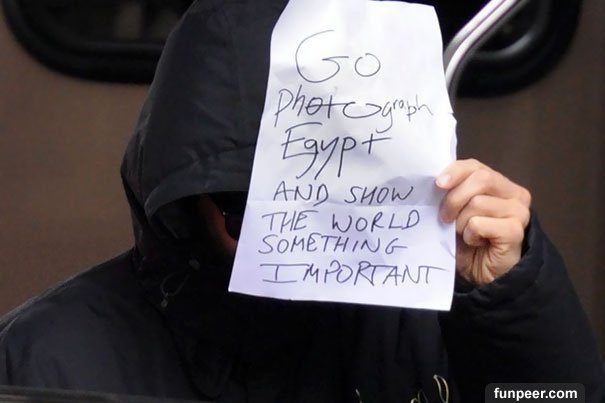 Go
Photograph
Egypt
AND SHOW
THE WORLD
SOMETHING
IMPORTANT
funpeer.com